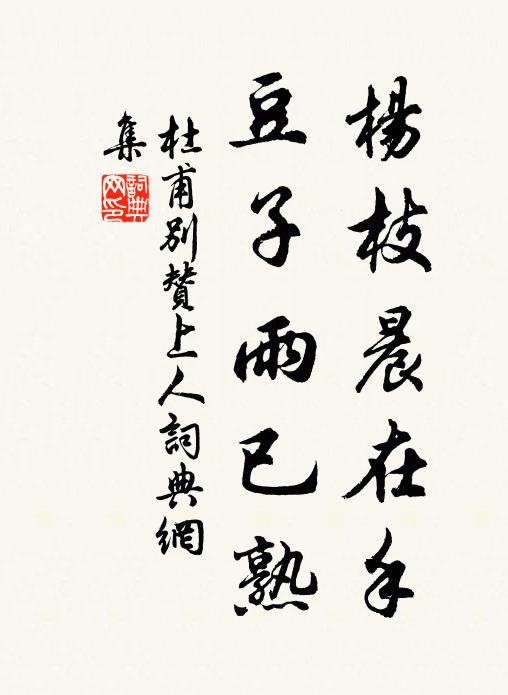 楊枝晨在手
豆子雨已熟
杜甫別贊上人詞典網
集
詞典
网印